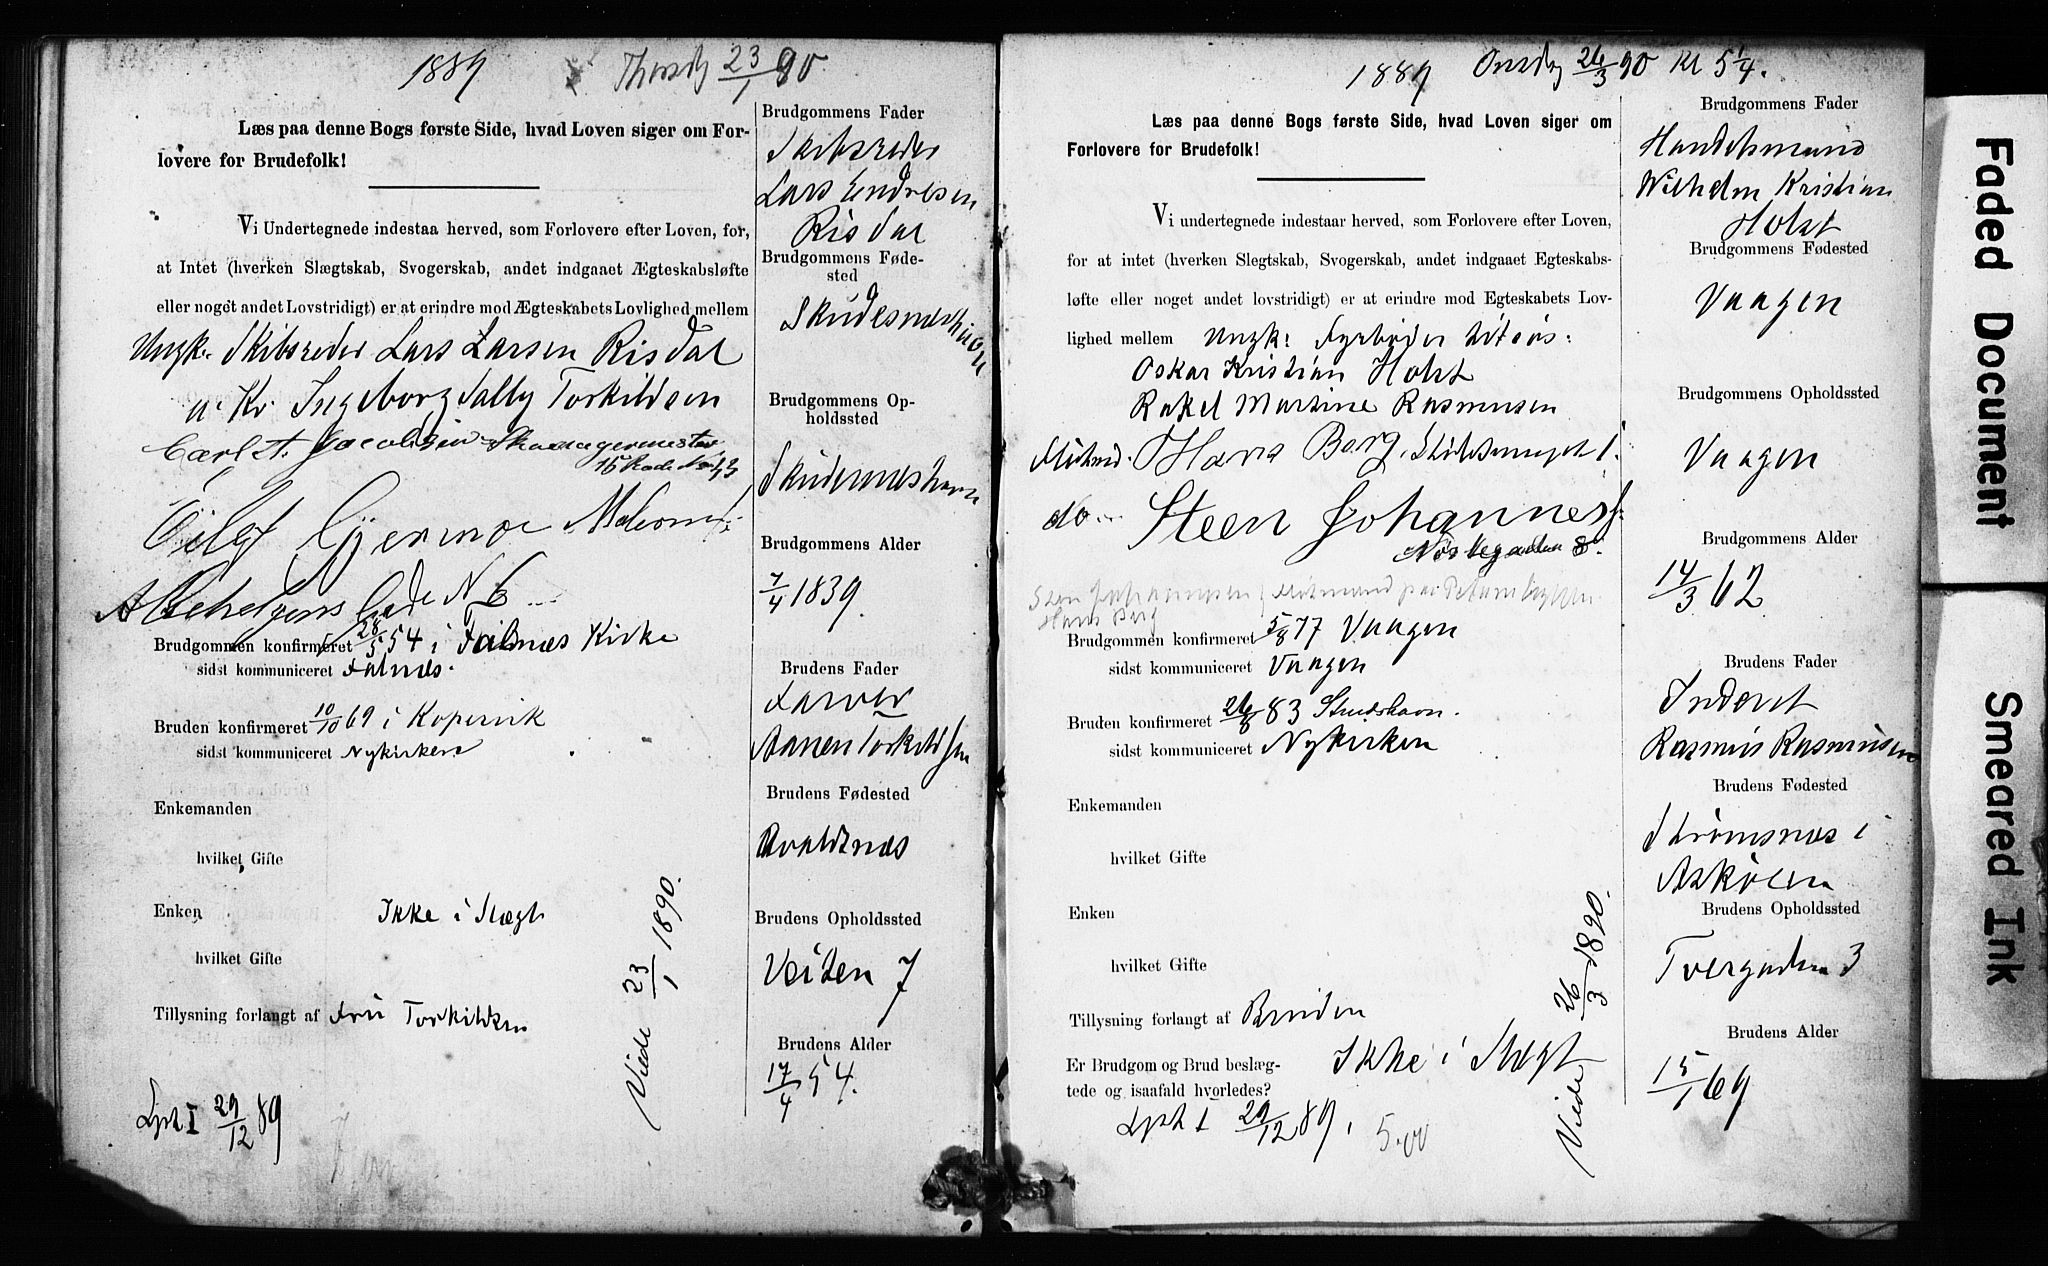 1889 Thorsdg 23/1 90
Læs paa denne Bogs første Side, hvad Loven siger om For-
lovere for Brudefolk!
Vi Undertegnede indestaa herved, som Forlovere efter Loven, for,
at Intet (hverken Slægtskab, Svogerskab, andet indgaaet Ægteskabsløfte
eller noget andet Lovstridigt) er at erindre mod Ægteskabets Lovlighed mellem
Ungk. Skibsreder Lars Larsen Risdal
Ingeborg Sally Torkildsen
Carl A. Jacobsen Skomagermester
15 Rode No 43
Gjermoe
Brudgommen konfirmeret 28/5 54 i Falnæs Kirke
sidst kommuniceret Falnæs.
Bruden konfirmeret 10/10 69 i Kopervik
sidst kommuniceret Nykirken
Enkemanden
hvilket Gifte
Enken Ikke i Slægt
hvilket Gifte
Tillysning forlangt af Fru Torkildsen
Lyst I 29/12 89
Viede 23/1 1890.
Brudgommens Fader
Skibsreder
Lars Endresen
Risdal
Brudgommens Føde-
sted
Skudesneshavn
Brudgommens Op-
holdssted
Skudesneshavn
Brudgommens Alder
7/4 1839.
Brudens Fader
Farver
Aanen Torkildsen
Brudens Fødested
Avaldsnæs
Brudens Opholdssted
Veiten 7
Brudens Alder
17/4 54.
1889 Onsdg 26/3 90 Kl 5 1/4.
Læs paa denne Bogs første Side, hvad Loven siger om
Forlovere for Brudefolk!
Vi undertegnede indestaar herved, som Forlovere efter Loven,
for at intet (hverken Slegtskab, Svogerskab, andet indgaaet Egteskabs-
løfte eller noget andet lovstridigt) er at erindre mod Egteskabets Lov-
lighed mellem Ungk: Fyrbøder
Oskar Kristian Holst
Rakel Martine Rasmussen
Hans Berg
do Steen Johannes
8.
Steen Johannessen
Hans Berg
Brudgommen konfirmeret 5/8 77 Vaagen
sidst kommuniceret Vaagen
Bruden konfirmeret 26/8 83 Strudshavn.
sidst kommuniceret Nykirken
Enkemanden
hvilket Gifte
Enken
hvilket Gifte
Tillysning forlangt af Bruden
Er Brudgom og Brud beslæg-
tede og isaafald hvorledes? Ikke i Slægt
Lyst I 29/12 89.
5.00
Viede 26/3 1890.
Brudgommens Fader
Handelsmand
Wilhelm Kristian
Holst
Brudgommens Fødested
Vaagen
Brudgommens Opholdssted
Vaagen
Brudgommens Alder
14/3 62
Brudens Fader
Inderst
Rasmus Rasmussen
Brudens Fødested
Strømsnæs i
Askøen
Brudens Opholdssted
Tvergaden 3
Brudens Alder
15/1 69
Faded Document
Smeared Ink